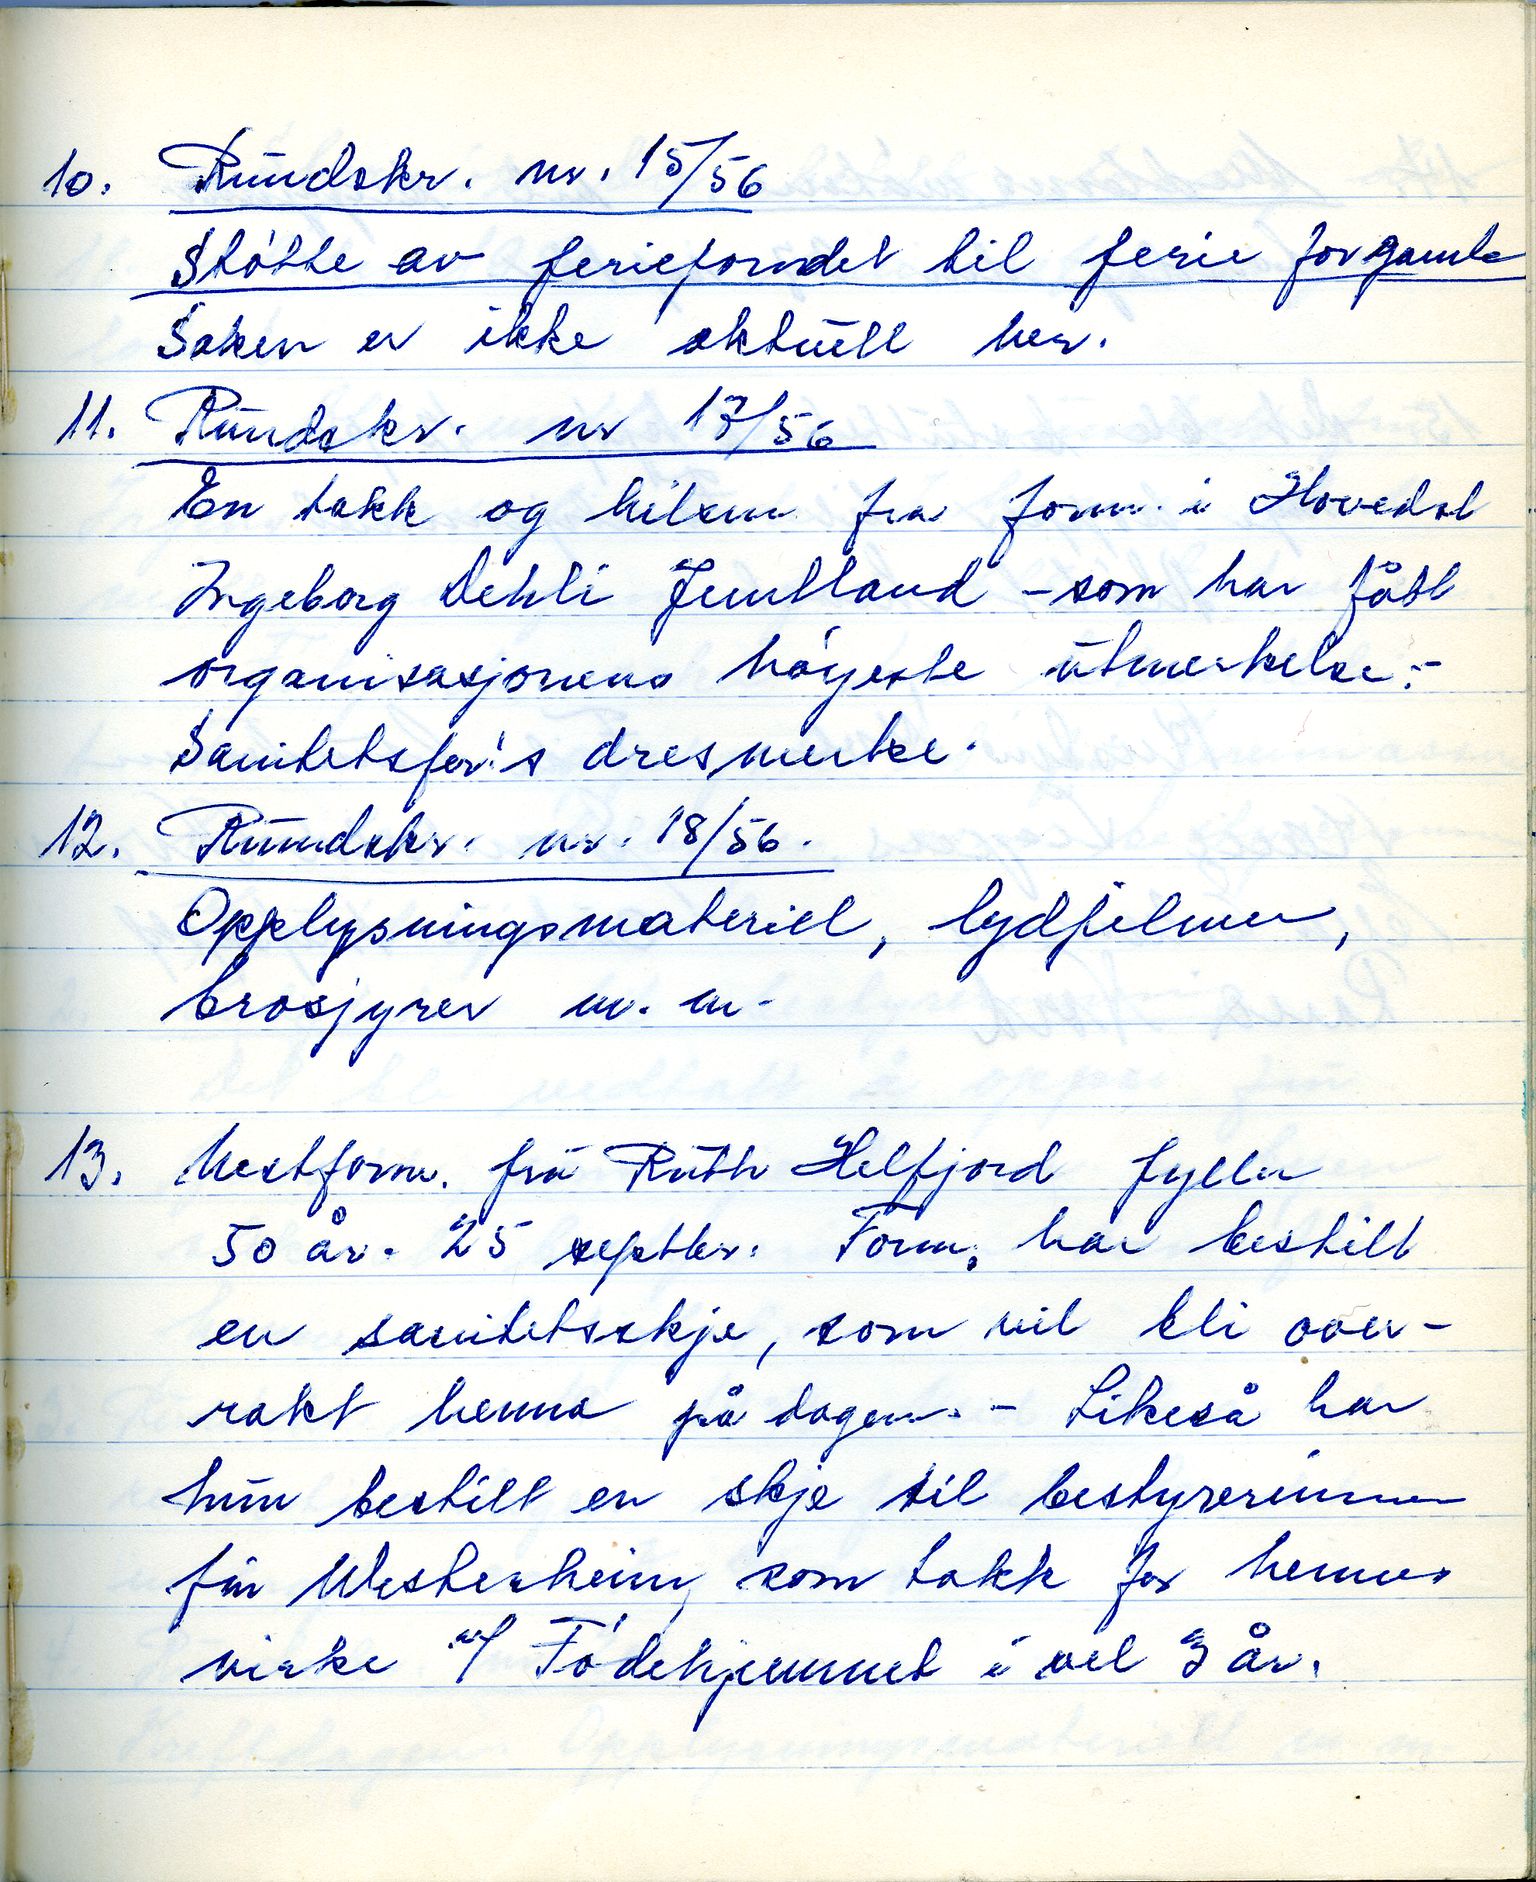 10. Rundskr. nr. 15/56
Støtte av feriefondet til ferie for gamle
Saken er ikke aktuell her.
11. Rundskr. nr 17/56
En takk og hilsen fra form. i Hovedst
Ingeborg Dehli - som har fått
organisasjonens høyeste utmerkelse:-
Sanitetsfor's dresmerke.
12. Rundskr. nr. 18/56.
Opplysningsmateriell, lydfilmer,
brosjyrer m. m.
13. Nestform. fru Ruth Helfjord fyller
50 år. 25 septbr. Form. har bestilt
en sanitetsskje, som vil bli over-
rakt henne på dagen. - Likeså har
hun bestilt en skje til bestyrerinnen
frk Westerheim, som takk for hennes
virke v/ Fødehjemmet i vel 3 år.